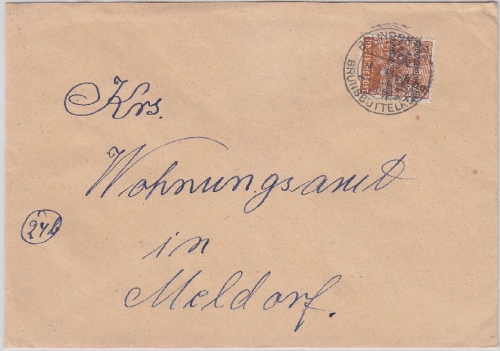 Krs.
Wohnungsamt
24b
in
Meldorf.
BRUNSBÜTTELKOOG